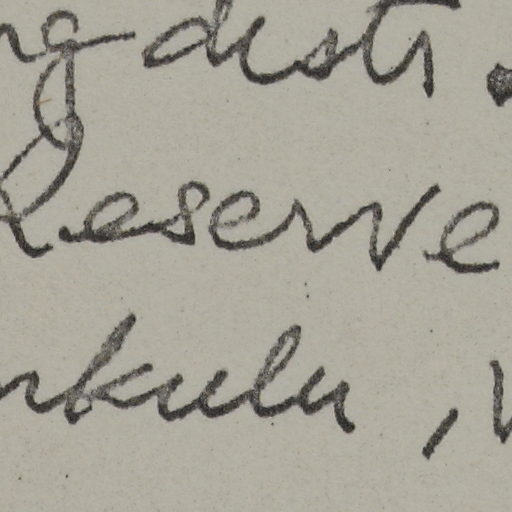 ng distr.
Reserve
nkulu,